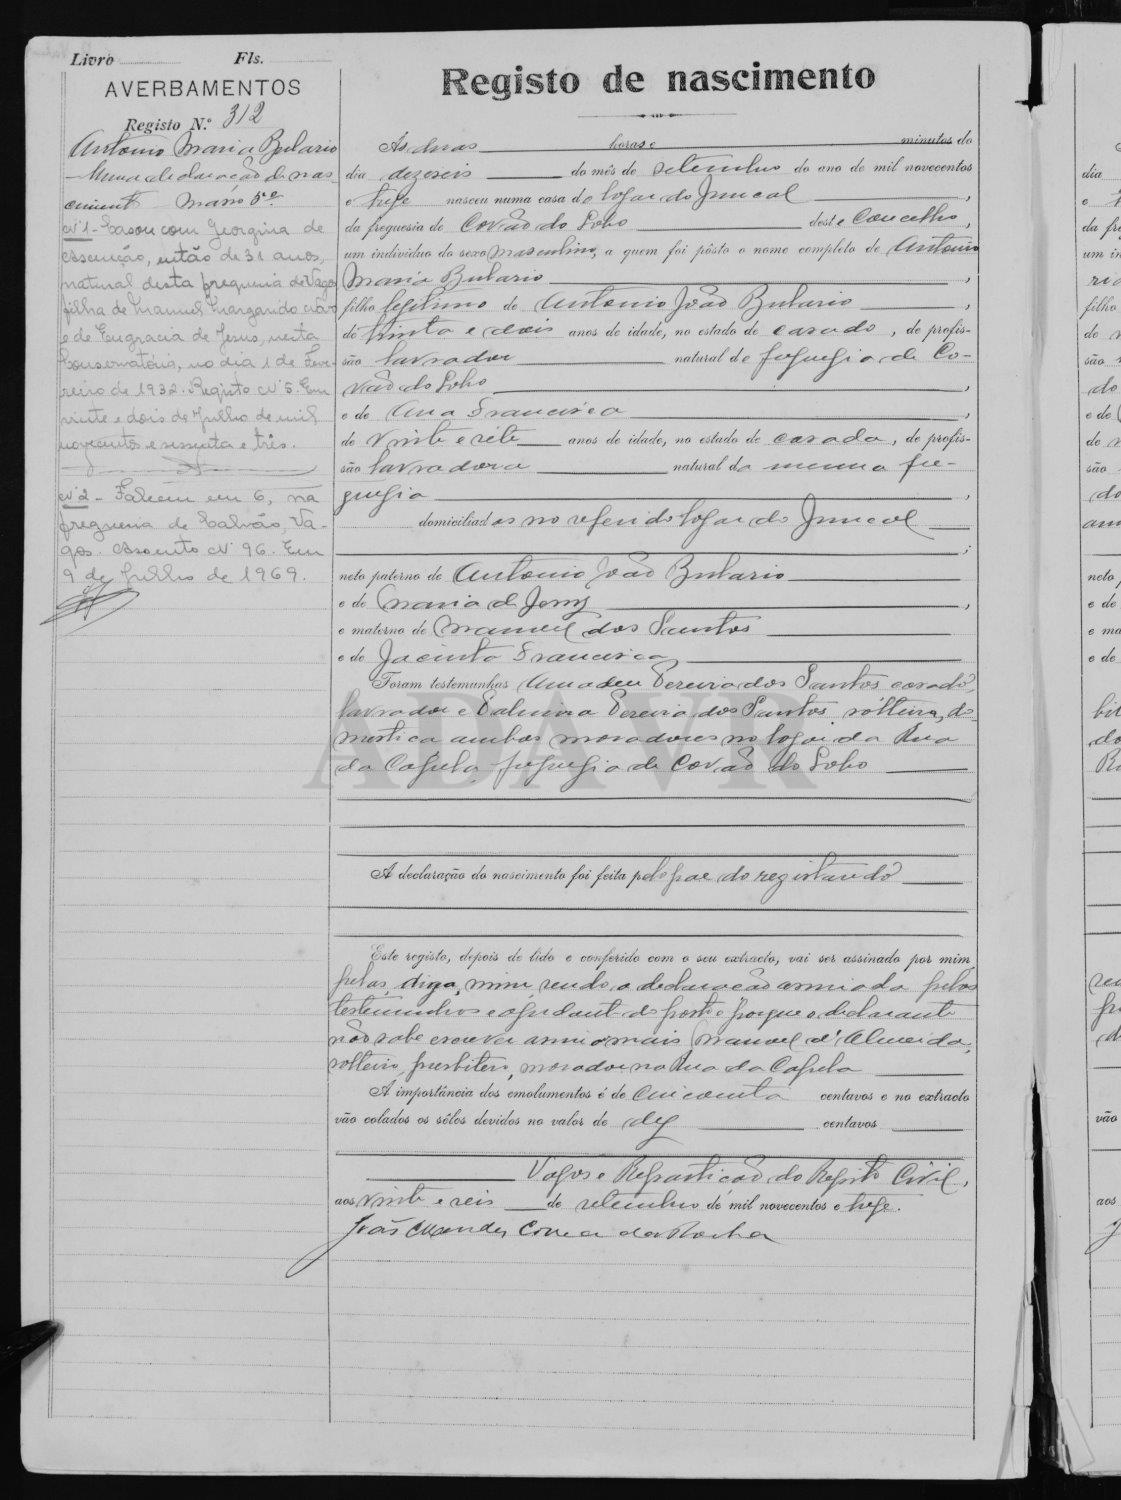 Livro Fls.
AVERBAMENTOS
Registo N.º 312
Antonio Maria Bulario
Numa declaração de nas-
ciment Maço 5.º
Nº 1 - Casou com Georgina de
Assunção, então de 31 anos,
natural desta freguesia de Vagos
filha de Manuel Margarido
e de Engracia de Jesus, nesta
Conservatória, no dia 1 de Feve-
reiro de 1932. Registo Nº 5. Em
vinte e dois de Julho de mil
novecentos e sessenta e três.
Nº 2 - Faleceu em 6, na
freguesia de Calvão, Va-
gos. Assento Nº 96. Em
9 de Julho de 1969.
Registo de nascimento
Ás duas horas e minutos do
dia dezeseis do mês de setembro do ano de mil novecentos
e treze nasceu numa casa do logar do Juncal,
da freguesia de Covão do Lobo deste Concelho,
um individuo do sexo masculino, a quem foi pôsto o nome completo de Antonio
Maria Bulario,
filho legitimo de Antonio João Bulario,
de trinta e dois anos de idade, no estado de casado, de profis-
são lavrador natural da freguesia de Co-
vão do Lobo,
e de Ana Francisca,
de vinte e sete anos de idade, no estado de casada, de profis-
são lavradora natural da mesma fre-
guesia,
domiciliados no referido logar do Juncal
;
neto paterno de Antonio João Bulario
e de Maria de Jesus,
e materno de Manuel dos Santos
e de Jacinta Francisca,
Foram testemunhas Amadeu Pereira dos Santos casado,
lavrador e Palmira Pereira dos Santos, solteira, do-
mestica ambos moradores no logar da Rua
da Capela, freguesia de Covão do Lobo
ADAVR
A declaração do nascimento foi feita pelo pae do registando
Este registo, depois de lido e conferido com o seu extracto, vai ser assinado por mim,
pelas, digo, mim, sendo a declaração assinada pelas
testemunhas e ajudante do posto e porque o declarante
não sabe escrever assina mais Manuel d'Almeida,
solteiro, presbitero, morador na Rua da Capela
A importância dos emolumentos é de cincoenta centavos e no extracto
vão colados os sêlos devidos no valor de dez centavos
Vagos e Repartição do Registo Civil,
aos vinte e seis de setembro de mil novecentos e treze.
João Mendes Correa da Rocha